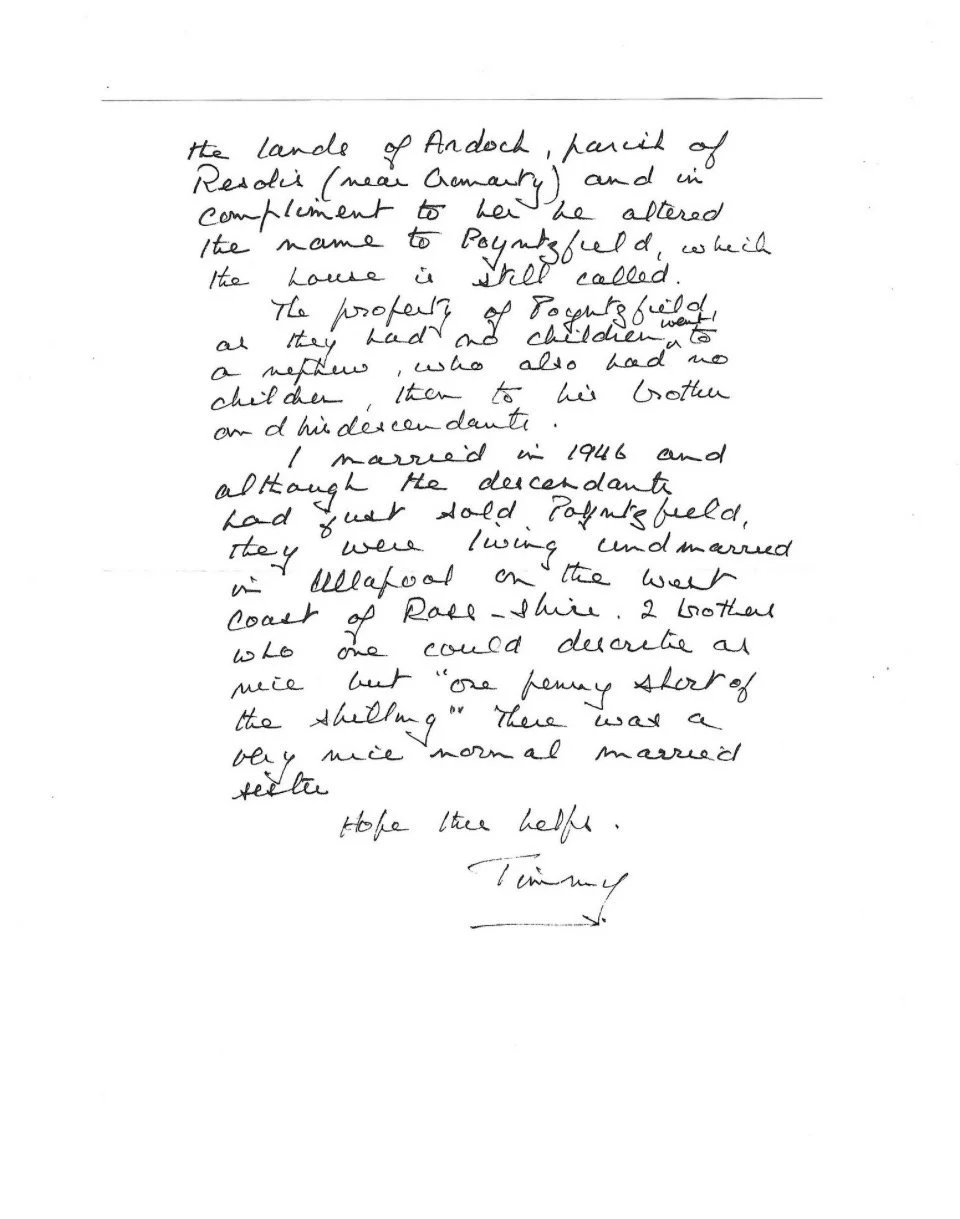 the lands of Ardoch, parish of
Resolis (near Cromarty) and in
compliment to her he altered
the name to Poyntzfield, which
the house is still called.
The property of Poyntzfield,
as they had no children went to
a nephew, who also had no
children, then to his brother
and his descendants.
I married in 1946 and
although the descendants
had just sold Poyntzfield,
they were living undmarried
in Ullapool on the west
coast of Ross-shire. 2 brothers
who one could describe as
nice but "one penny short of
the shilling" There was a
very nice normal married
sister
Hope this helps.
Timmy